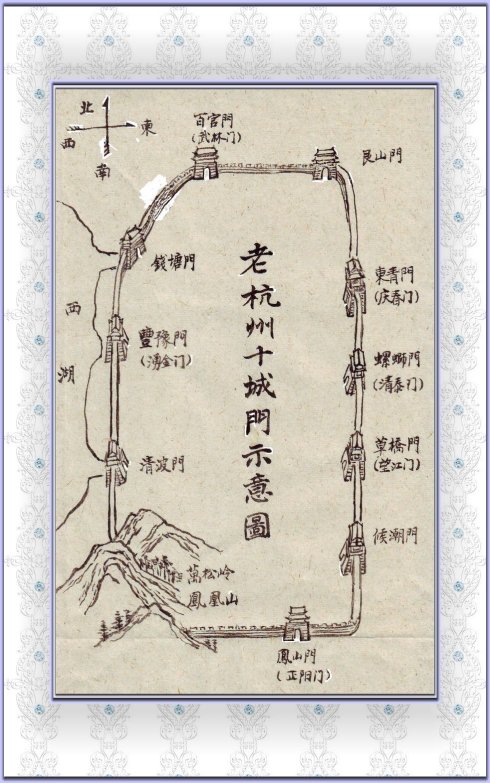 北
東
西
南
百官門
(武林门)
艮山門
錢塘門
東青門
(庆春门)
老杭州十城門示意圖
西湖
豐豫門
(湧金门)
螺螄門
(清泰门)
清波門
草橋門
(望江门)
候潮門
萬松岭
鳳凰山
鳳山門
(正阳门)